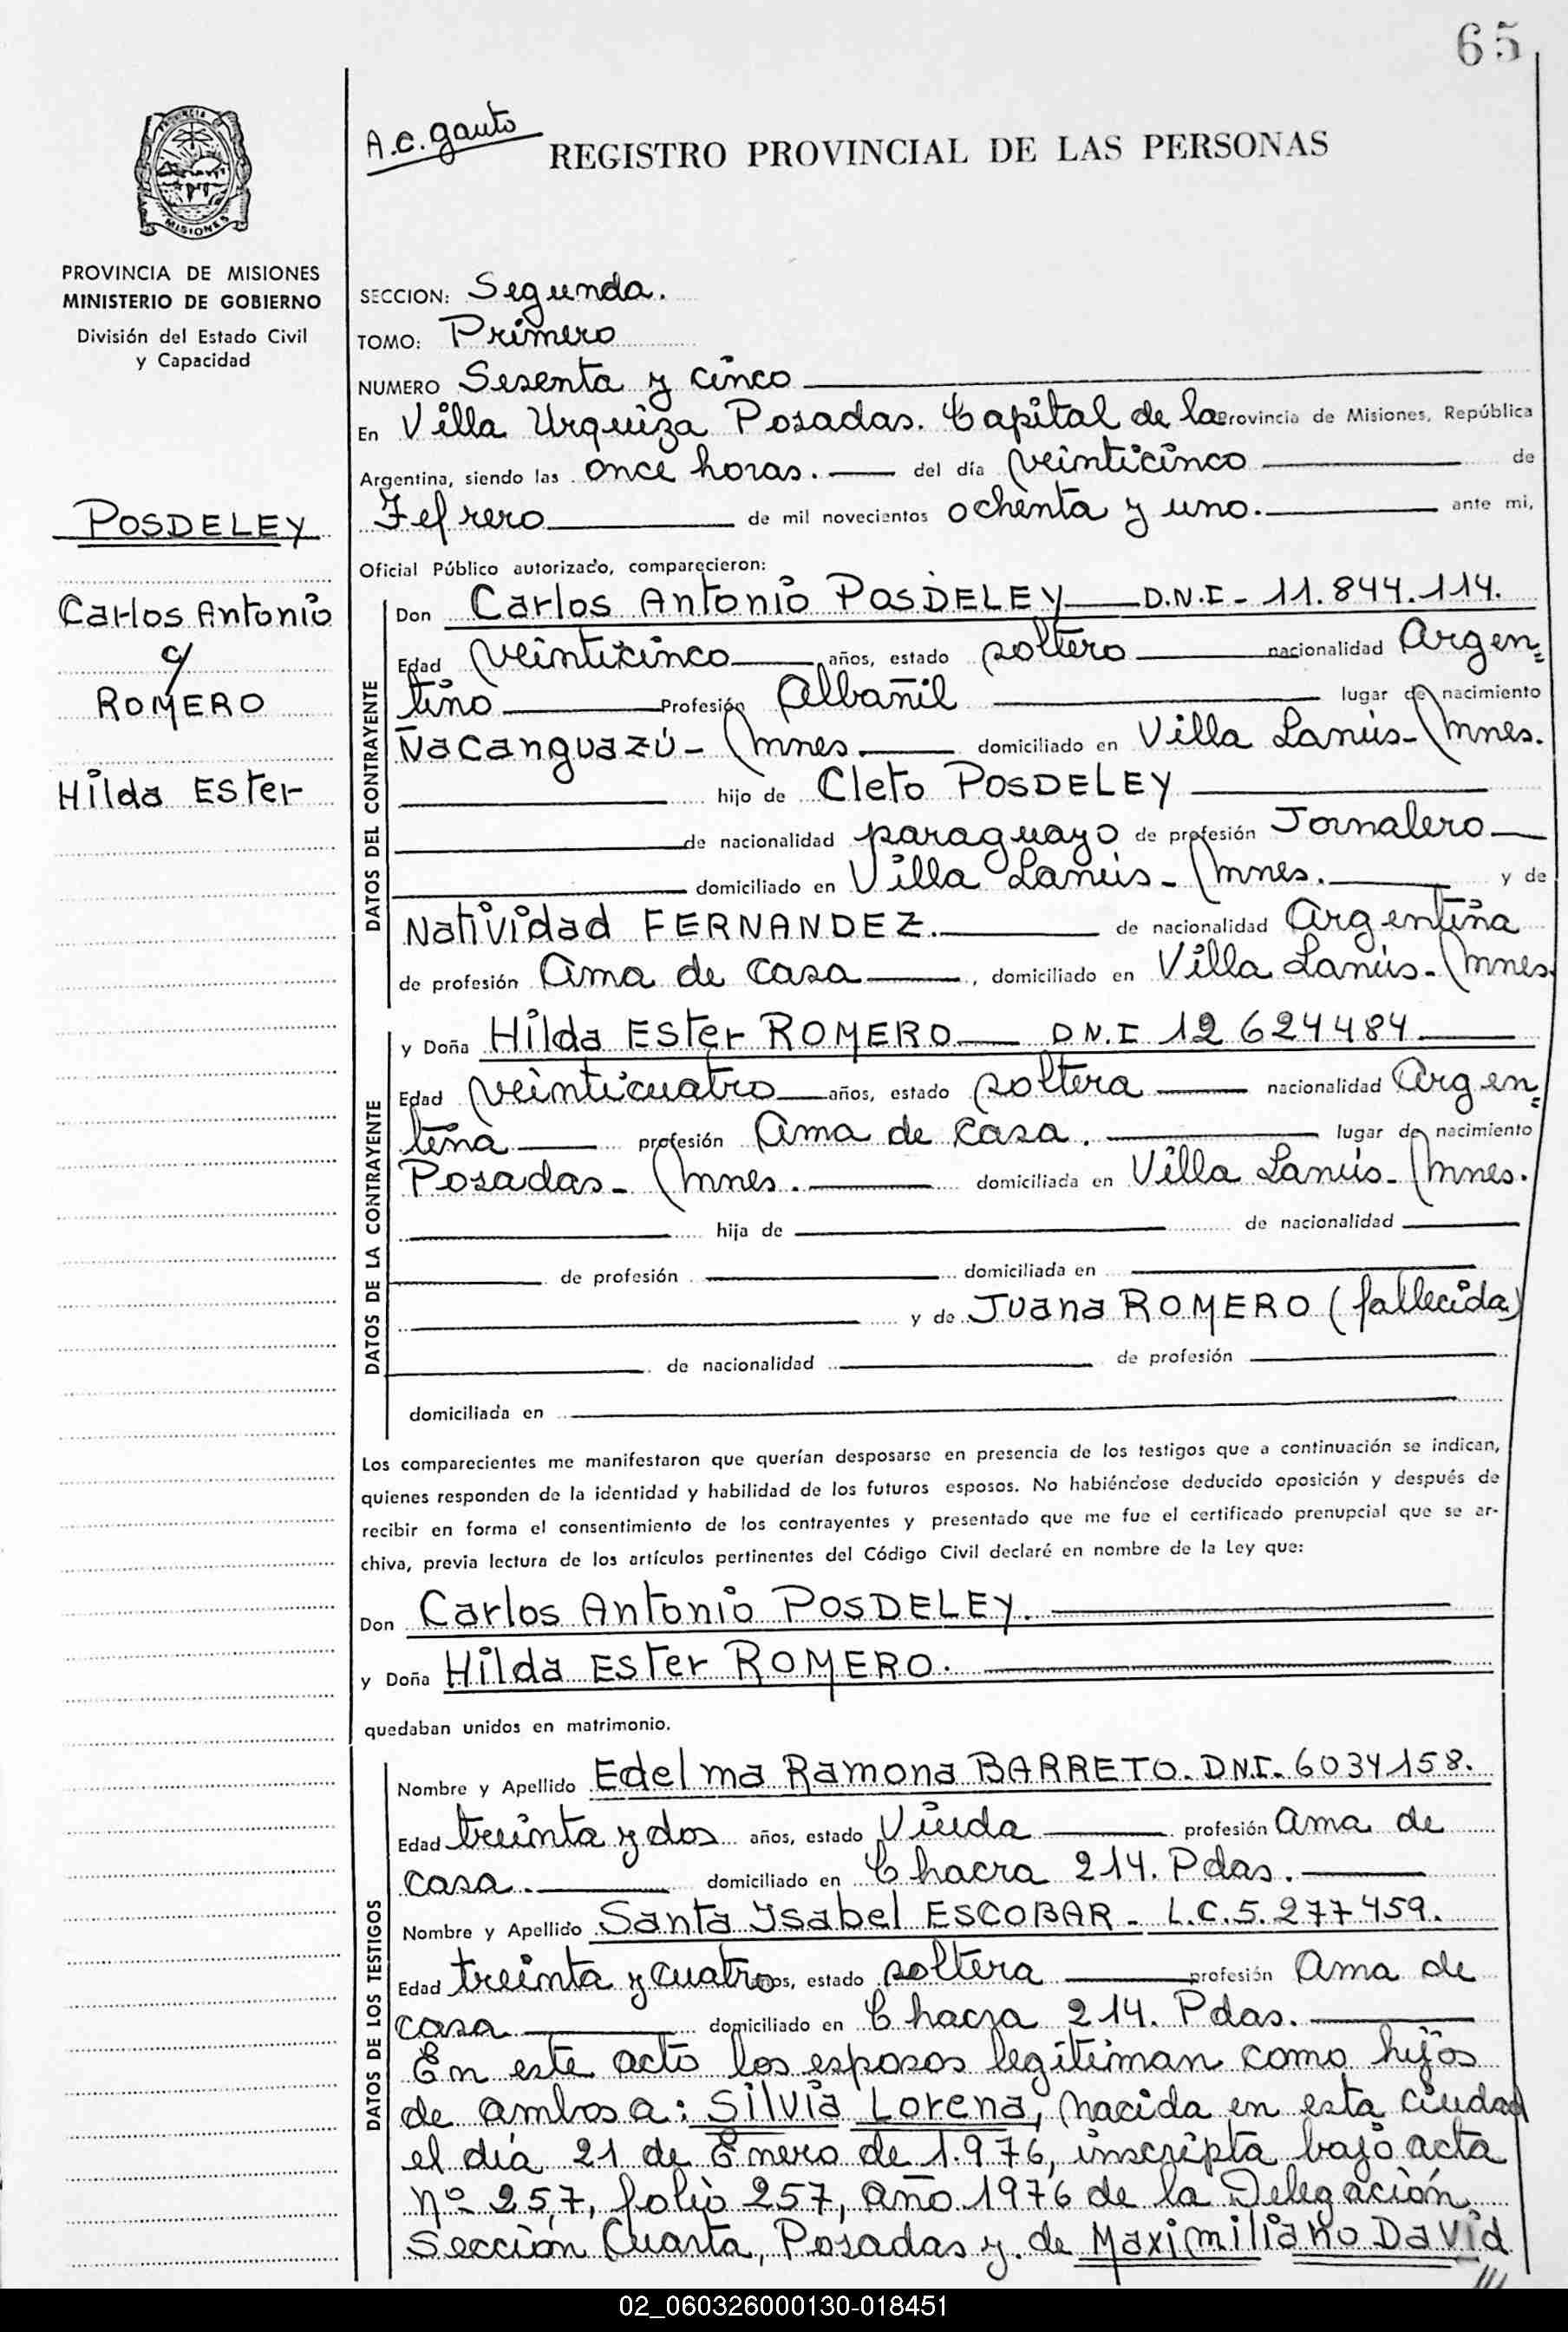 65
A.C. Gauto
REGISTRO PROVINCIAL DE LAS PERSONAS
PROVINCIA
MISIONES
PROVINCIA DE MISIONES
MINISTERIO DE GOBIERNO
División del Estado Civil
y Capacidad
SECCION: Segunda.
TOMO: Primero
NUMERO Sesenta y cinco
En Villa Urquiza Posadas. Capital de la Provincia de Misiones, República
Argentina, siendo las once horas. del día veinticinco de
Fefrero de mil novecientos ochenta y uno. ante mi,
POSDELEY
Carlos Antonio
y
ROMERO
Hilda Ester
Oficial Público autorizado, comparecieron:
DATOS DEL CONTRAYENTE
Don Carlos Antonio POSDELEY D.N.I - 11.844.114.
Edad veinticinco años, estado soltero nacionalidad Argen=
tino Profesión Albañil lugar de nacimiento
Ñacanguazú - Mnes. domiciliado en Villa Lanús - Mnes.
hijo de Cleto POSDELEY
de nacionalidad paraguayo de profesión Jornalero
domiciliado en Villa Lanús - Mnes. y de
Natividad FERNANDEZ. de nacionalidad Argentina
de profesión Ama de casa, domiciliado en Villa Lanús - Mnes.
DATOS DE LA CONTRAYENTE
y Doña Hilda Ester ROMERO D.N.I 12 624484
Edad veinticuatro años, estado soltera nacionalidad Argen=
tina profesión Ama de casa. lugar de nacimiento
Posadas - Mnes. domiciliada en Villa Lanús - Mnes.
hija de de nacionalidad
de profesión domiciliada en
y de Juana ROMERO (fallecida)
de nacionalidad de profesión
domiciliada en
Los comparecientes me manifestaron que querían desposarse en presencia de los testigos que a continuación se indican,
quienes responden de la identidad y habilidad de los futuros esposos. No habiéndose deducido oposición y después de
recibir en forma el consentimiento de los contrayentes y presentado que me fue el certificado prenupcial que se ar-
chiva, previa lectura de los artículos pertinentes del Código Civil declaré en nombre de la Ley que:
Don Carlos Antonio POSDELEY.
y Doña Hilda Ester ROMERO.
quedaban unidos en matrimonio.
DATOS DE LOS TESTIGOS
Nombre y Apellido Edelma Ramona BARRETO. DNI - 6034158.
Edad treinta y dos años, estado Viuda profesión Ama de
casa. domiciliado en Chacra 214. Pdas.
Nombre y Apellido Santa Isabel ESCOBAR - L.C.5.277459.
Edad treinta y cuatro años, estado soltera profesión Ama de
casa domiciliado en Chacra 214. Pdas.
En este acto los esposos legitiman como hijos
de ambos a: Silvia Lorena, nacida en esta ciudad
el día 21 de Enero de 1.976, inscripta bajo acta
nº 257, folio 257, año 1976 de la Delegación
Sección Cuarta, Posadas y de Maximiliano David
///
02_060326000130-018451